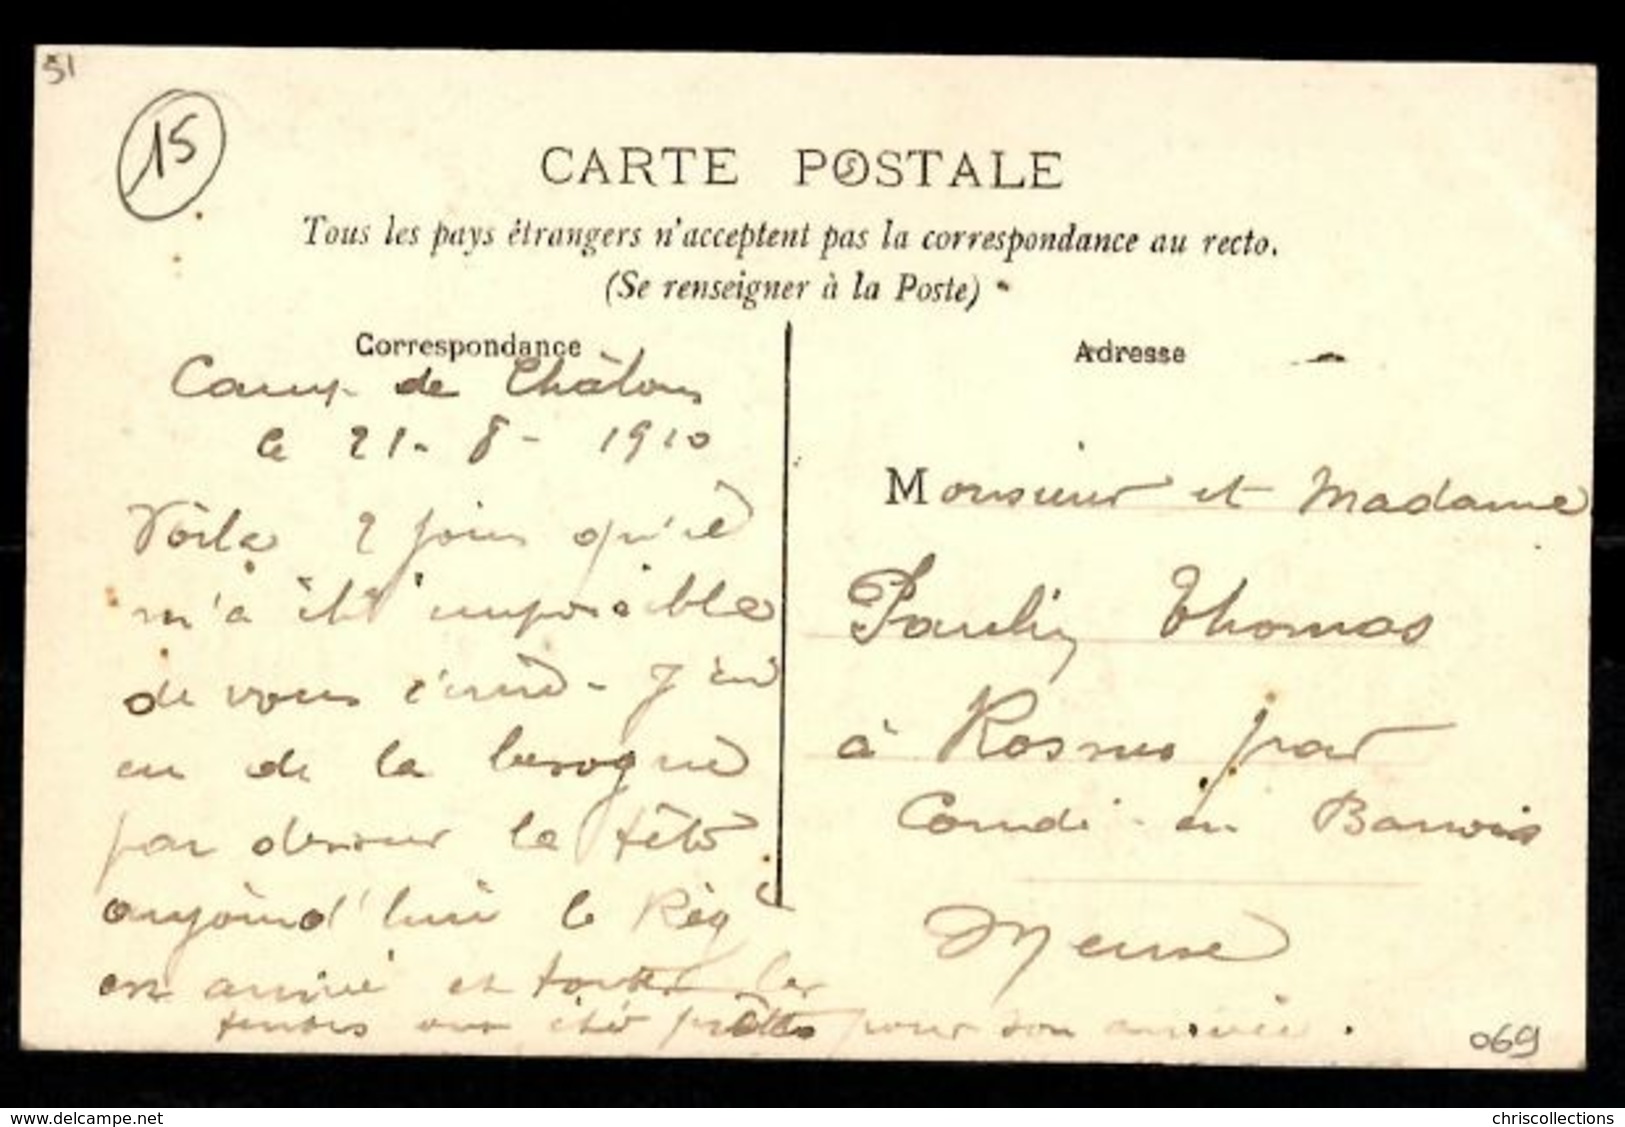 51
15
CARTE POSTALE
Tous les pays étrangers n'acceptent pas la correspondance au recto.
(Se renseigner à la Poste)
Correspondance
Camp de Châlons
le 21-8-1910
Voila 2 jours qu'il
m'a été impossible
de vous écrire - J'ai
eu de la besogne
par dessus la tête.
aujourd'hui le Rég^t
est arrivé et toutes les
tentes ont été prêtes pour son arrivée.
Adresse
Monsieur et Madame
Paulin Thomas
à Rosnes par
Condé-en Barrois
Meuse
069
delcampe.net
chriscollections